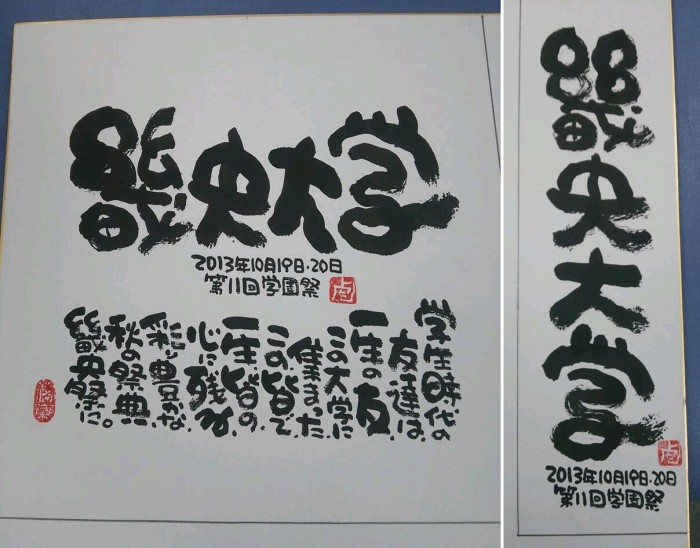 畿央大学
2013年10月19日・20日
第11回学園祭
虎
学生時代の
友達は、
一生の友
この大学に
集まった
この皆で
一生、皆の
心に残る、
彩り豊かな、
秋の祭典
畿央祭に。
畿央大学
虎
2013年10月19日・20日
第11回学園祭